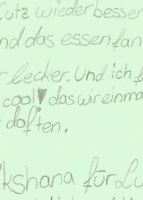 Cutz wiederbesser
nd das essenfan
r lecker. Und ich f
cool♥ daswireinma
doften.
kshana für Lu